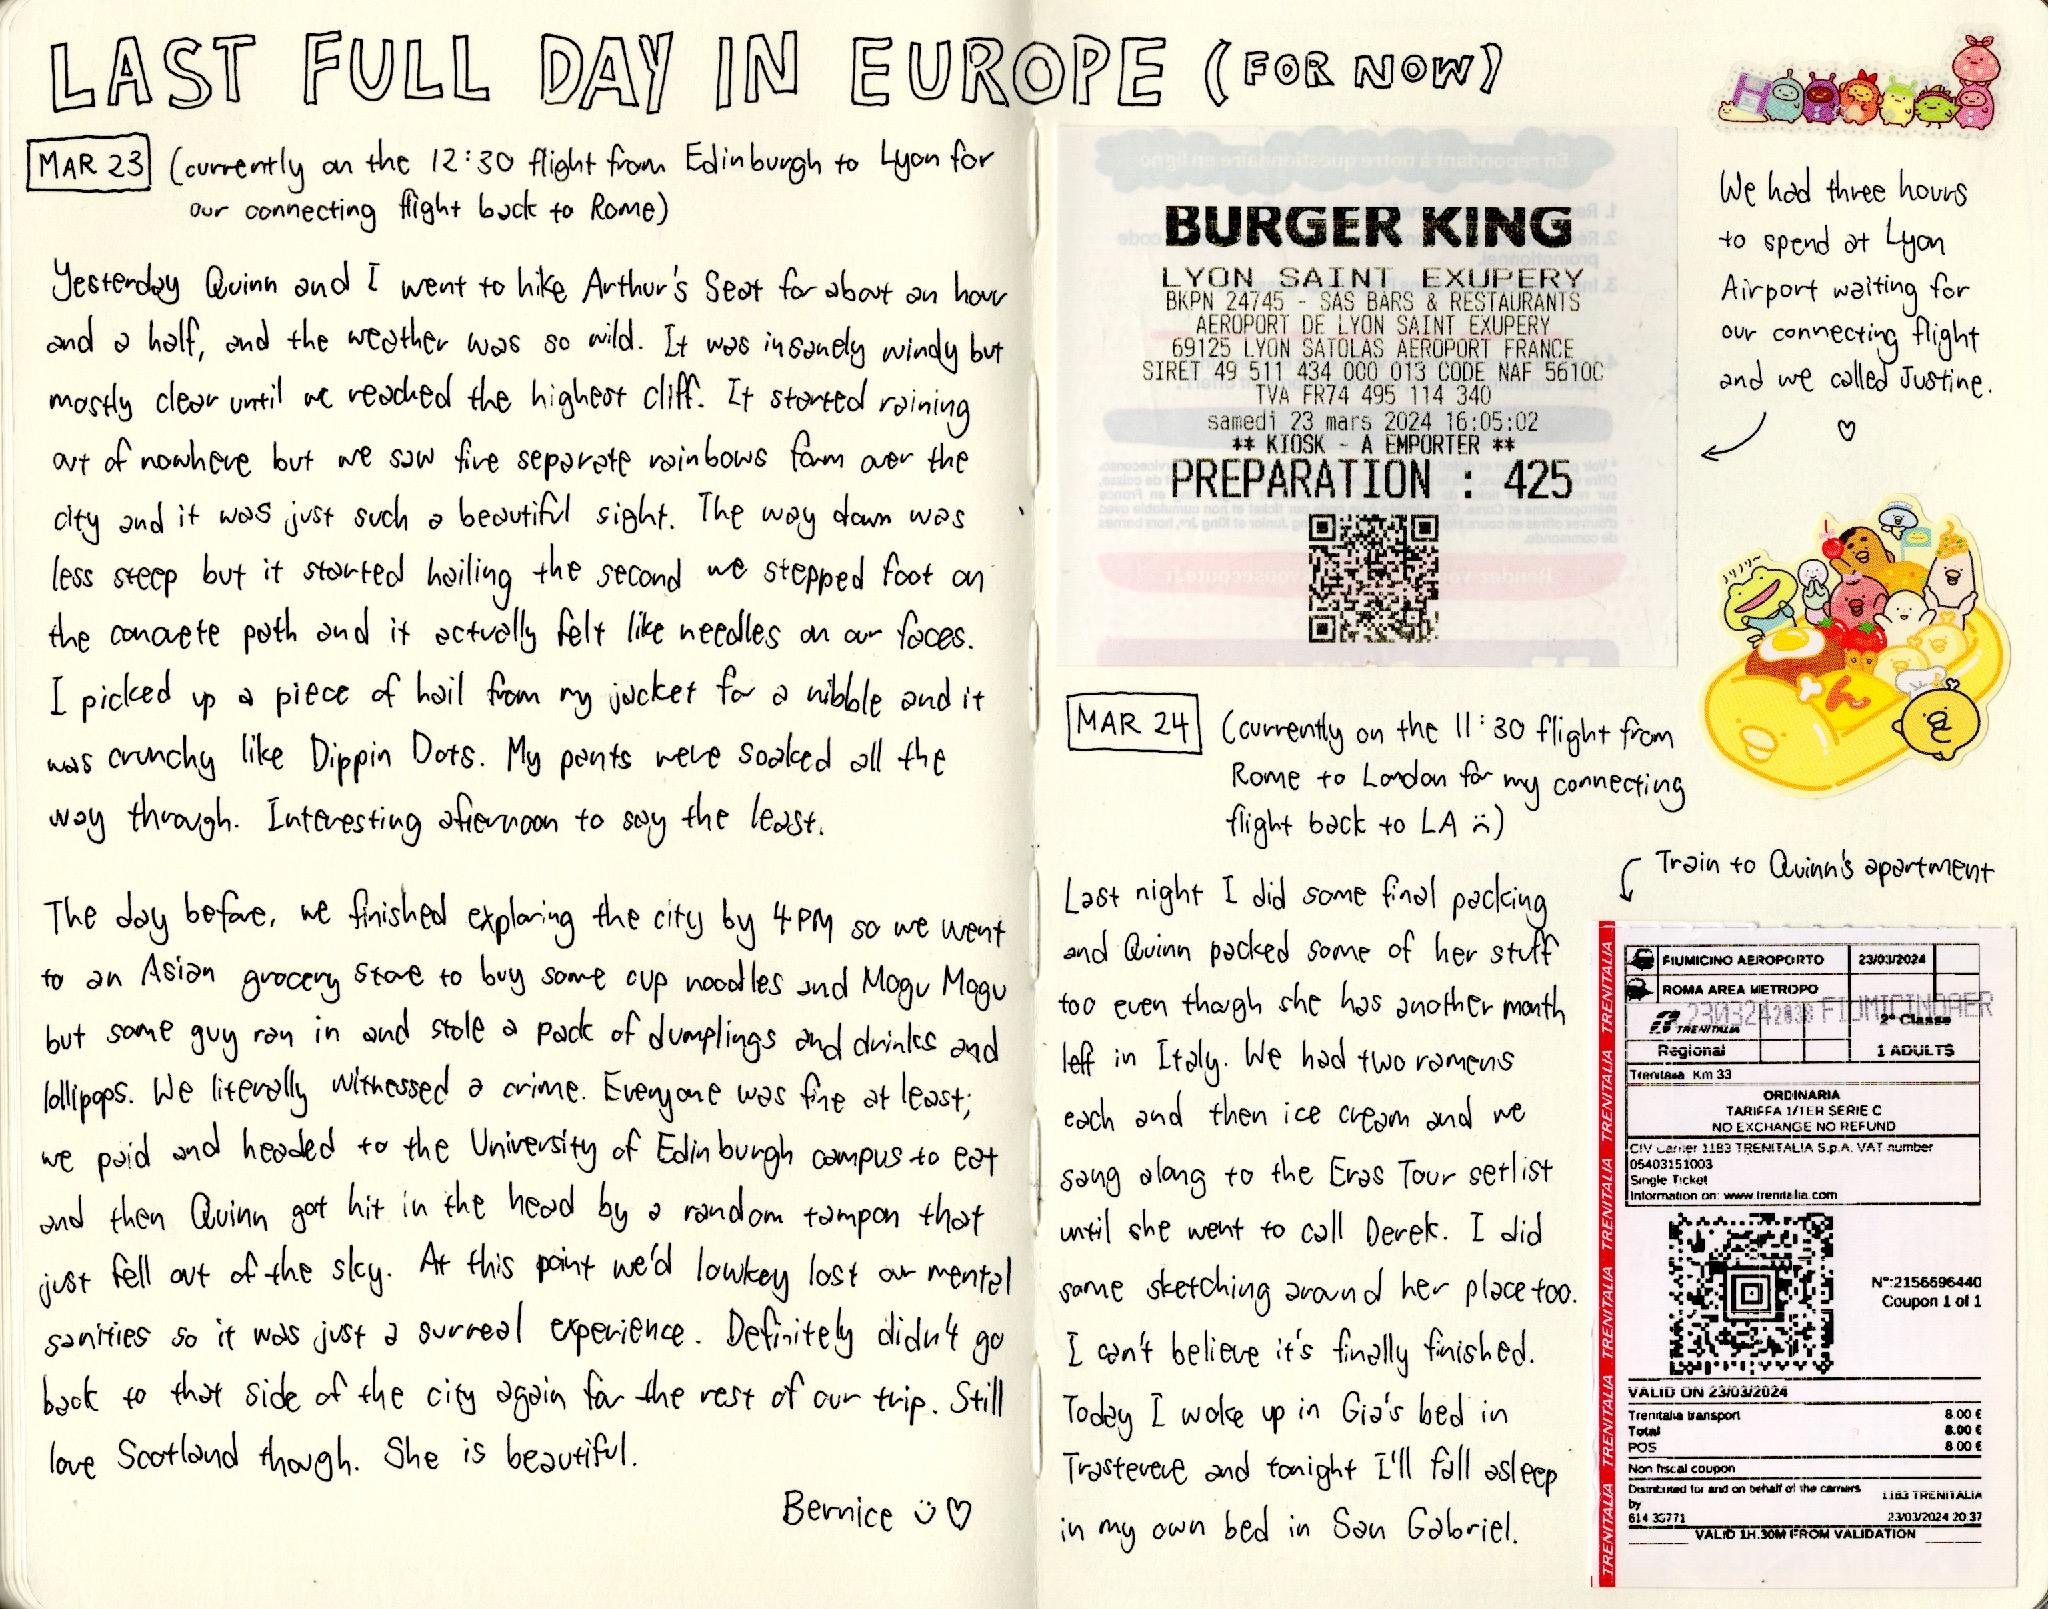 LAST FULL DAY IN EUROPE (FOR NOW)
MAR 23 (currently on the 12:30 flight from Edinburgh to Lyon for
our connecting flight back to Rome)
Yesterday Quinn and I went to hike Arthur's Seat for about an hour
and a half, and the weather was so wild. It was insanely windy but
mostly clear until we reached the highest cliff. It started raining
out of nowhere but we saw five separate rainbows form over the
city and it was just such a beautiful sight. The way down was
less steep but it started hailing the second we stepped foot on
the concrete path and it actually felt like needles on our faces.
I picked up a piece of hail from my jacket for a nibble and it
was crunchy like Dippin Dots. My pants were soaked all the
way through. Interesting afternoon to say the least.
The day before, we finished exploring the city by 4PM so we went
to an Asian grocery store to buy some cup noodles and Mogu Mogu
but some guy ran in and stole a pack of dumplings and drinks and
lollipops. We literally witnessed a crime. Everyone was fine at least;
we paid and headed to the University of Edinburgh campus to eat
and then Quinn got hit in the head by a random tampon that
just fell out of the sky. At this point we'd lowkey lost our mental
sanities so it was just a surreal experience. Definitely didn't go
back to that side of the city again for the rest of our trip. Still
love Scotland though. She is beautiful.
Bernice
En répondant à notre questionnaire en ligne
BURGER KING
LYON SAINT EXUPERY
BKPN 24745 - SAS BARS & RESTAURANTS
AEROPORT DE LYON SAINT EXUPERY
69125 LYON SATOLAS AEROPORT FRANCE
SIRET 49 511 434 000 013 CODE NAF 5610C
TVA FR74 495 114 340
samedi 23 mars 2024 16:05:02
** KIOSK - A EMPORTER **
PREPARATION : 425
We had three hours
to spend at Lyon
Airport waiting for
our connecting flight
and we called Justine.
MAR 24 (currently on the 11:30 flight from
Rome to London for my connecting
flight back to LA)
Last night I did some final packing
and Quinn packed some of her stuff
too even though she has another month
left in Italy. We had two ramens
each and then ice cream and we
sang along to the Eras Tour setlist
until she went to call Derek. I did
some sketching around her place too.
I can't believe it's finally finished.
Today I woke up in Gia's bed in
Trastevere and tonight I'll fall asleep
in my own bed in San Gabriel.
Train to Quinn's apartment
TRENITALIA TRENITALIA TRENITALIA TRENITALIA TRENITALIA TRENITALIA
FIUMICINO AEROPORTO 23/03/2024
ROMA AREA METROPO
TRENITALIA 2ª Classe
Regional 1 ADULTS
Trenitalia Km 33
ORDINARIA
TARIFFA 1/1ER SERIE C
NO EXCHANGE NO REFUND
CIV Carrier 1183 TRENITALIA S.p.A. VAT number
05403151003
Single Ticket
Information on: www.trenitalia.com
N°:2156696440
Coupon 1 of 1
VALID ON 23/03/2024
Trenitalia transport 8.00 €
Total 8.00 €
POS 8.00 €
Non fiscal coupon
Distributed for and on behalf of the carriers
by 1183 TRENITALIA
23/03/2024 20:37
VALID 1H.30M FROM VALIDATION